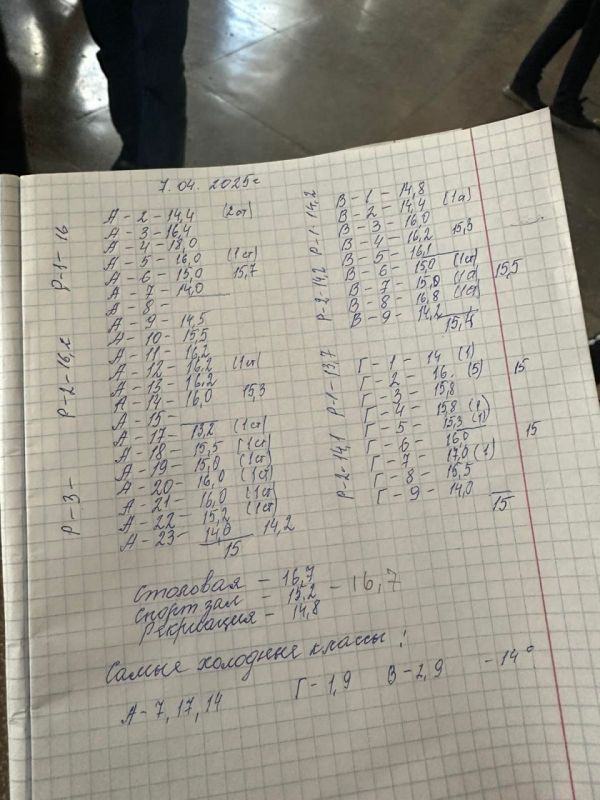 7.04. 2025г
Р-1-16
А - 2 - 14,4 (2ст)
А - 3 - 16,4
А - 4 - 18,0
А - 5 - 16,0 (1ст)
А - 6 - 15,0 15,7
А - 7 - 14,0
А - 8 -
Р-2-16,2
А - 9 - 14,5
А - 10 - 15,5
А - 11 - 16,2
А - 12 - 16,2 (1ст)
А - 13 - 16,2
А - 14 - 16,0 15,3
А - 15 -
Р-3-
А - 17 - 13,2 (1ст)
А - 18 - 15,5 (1ст)
А - 19 - 15,0 (1ст)
А - 20 - 16,0 (1ст)
А - 21 - 16,0 (1ст)
А - 22 - 15,2 (1ст)
А - 23 - 14,0 14,2
15
Р-1-14,2
В - 1 - 14,8
В - 2 - 14,4 (1а)
В - 3 - 16,0
В - 4 - 16,2 15,3
Р-2-14,2
В - 5 - 16,1
В - 6 - 15,0 (1ст)
В - 7 - 15,0 (1а) 15,5
В - 8 - 16,8 (1ст)
В - 9 - 14,2
15,4
Р-1-13,7
Г - 1 - 14 (1)
Г - 2 - 16. (5) 15
Г - 3 - 15,8
Г - 4 - 15,8 (1)
Р-2-14,1
Г - 5 - 15,3 (1)
Г - 6 - 16,0 15
Г - 7 - 17,0 (1)
Г - 8 - 15,5
Г - 9 - 14,0
15
Столовая - 16,7
Спорт зал - 15,2 - 16,7
Рекривация - 14,8
Самые холодные классы!
А - 7, 17, 14 Г - 1, 9 В - 2, 9 - 14°